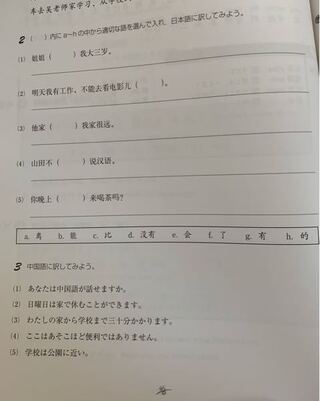 本去吴老师家学习，从学校
2 （ ）内に a～h の中から適切な語を選んで入れ、日本語に訳してみよう。
(1) 姐姐（ ）我大三岁。
(2) 明天我有工作，不能去看电影儿（ ）。
(3) 他家（ ）我家很远。
(4) 山田不（ ）说汉语。
(5) 你晚上（ ）来喝茶吗？
a. 离 b. 能 c. 比 d. 没有 e. 会 f. 了 g. 有 h. 的
3 中国語に訳してみよう。
(1) あなたは中国語が話せますか。
(2) 日曜日は家で休むことができます。
(3) わたしの家から学校まで三十分かかります。
(4) ここはあそこほど便利ではありません。
(5) 学校は公園に近い。